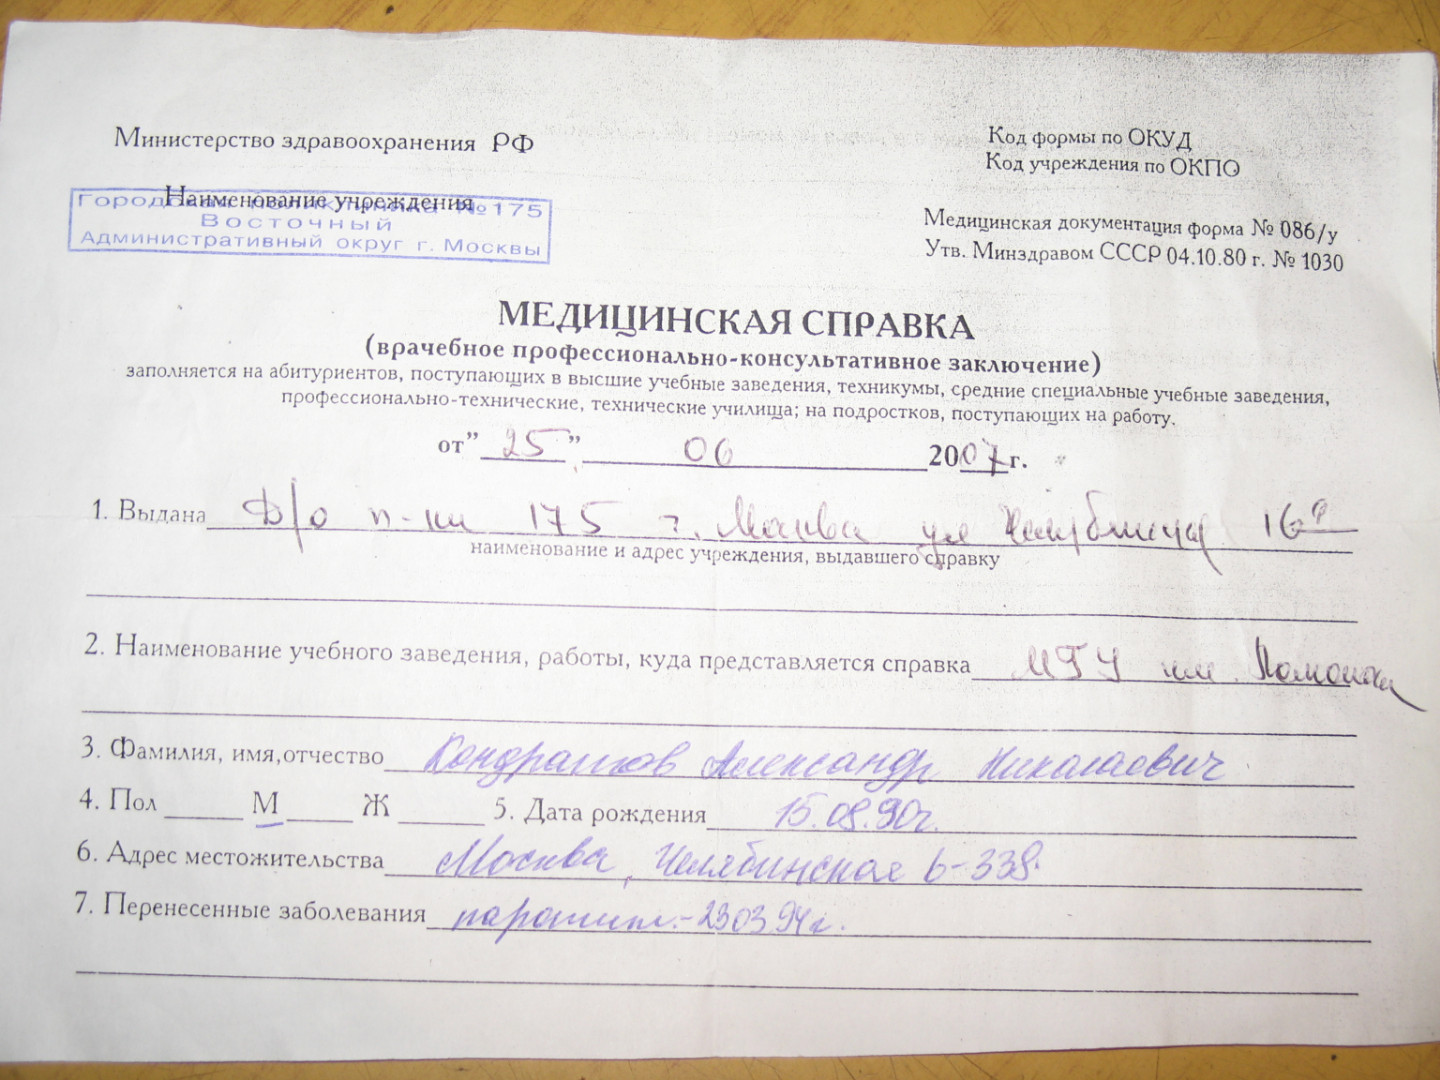 Министерство здравоохранения РФ
Код формы по ОКУД
Код учреждения по ОКПО
Наименование учреждения
Городская поликлиника №175
Восточный
Административный округ г. Москвы
Медицинская документация форма № 086/у
Утв. Минздравом СССР 04.10.80 г. № 1030
МЕДИЦИНСКАЯ СПРАВКА
(врачебное профессионально-консультативное заключение)
заполняется на абитуриентов, поступающих в высшие учебные заведения, техникумы, средние специальные учебные заведения,
профессионально-технические, технические училища; на подростков, поступающих на работу.
от" 25 " 06 2007 г.
1. Выдана Д/о п-ки 175 г. Москва ул Челябинская 16а
наименование и адрес учреждения, выдавшего справку
2. Наименование учебного заведения, работы, куда представляется справка МГУ им.
3. Фамилия, имя,отчество Кондрашов Александр Николаевич
4. Пол М Ж 5. Дата рождения 15.08.90г.
6. Адрес местожительства Москва, Челябинская 6-338.
7. Перенесенные заболевания паротит.-23.03.94г.